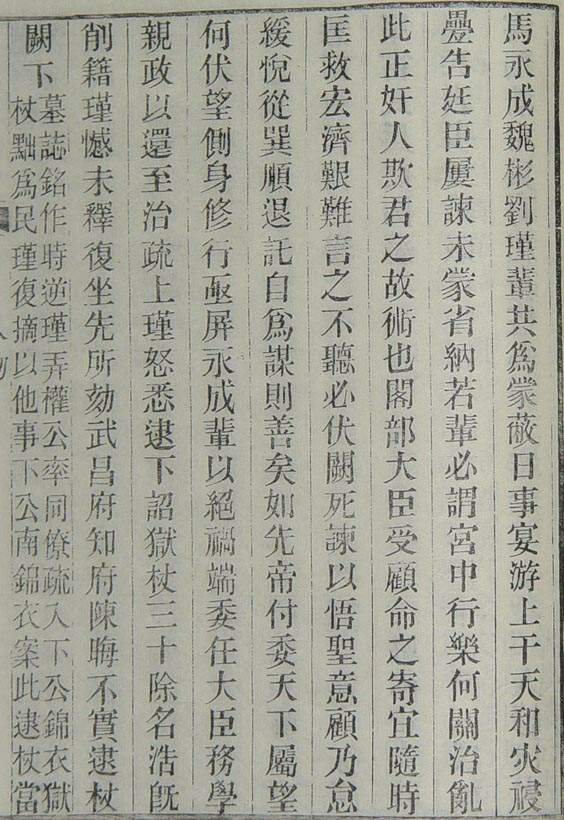 馬永成魏彬劉瑾輩共爲蒙蔽日事宴游上干天和災祲
疊告廷臣屢諫未蒙省納若輩必謂宮中行樂何關治亂
此正奸人欺君之故術也閣部大臣受顧命之寄宜隨時
匡救宏濟艱難言之不聽必伏闕死諫以悟聖意顧乃怠
緩悅從巽順退託自爲謀則善矣如先帝付委天下屬望
何伏望側身修行亟屏永成輩以絕禍端委任大臣務學
親政以還至治疏上瑾怒悉逮下詔獄杖三十除名浩旣
削籍瑾憾未釋復坐先所劾武昌府知府陳晦不實逮杖
闕下
墓誌銘作時逆瑾弄權公率同僚疏入下公錦衣獄
杖黜爲民瑾復摘以他事下公南錦衣案此逮杖當